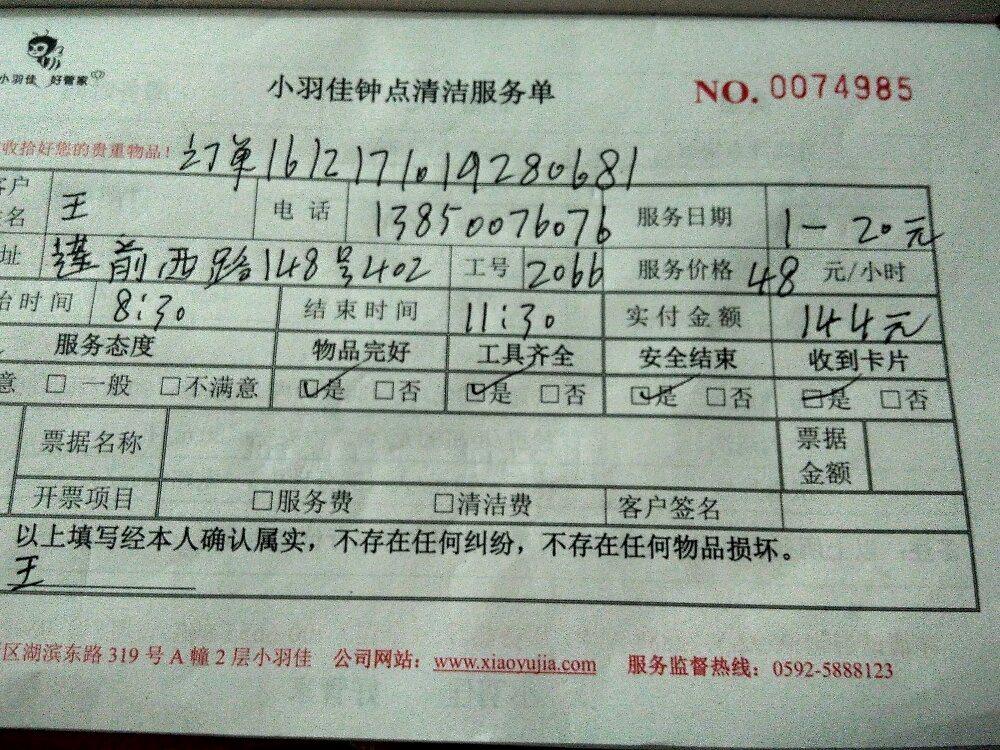 小羽佳 好管家
小羽佳钟点清洁服务单 NO. 0074985
收拾好您的贵重物品！ 订单1612171019280681
客户 名 王 电话 13850076076 服务日期 1-20元
址 莲前西路148号402 工号 2066 服务价格 48 元/小时
始时间 8:30 结束时间 11:30 实付金额 144元
服务态度 物品完好 工具齐全 安全结束 收到卡片
意 □ 一般 □不满意 ☑是 □否 ☑是 □否 ☑是 □否 ☑是 □否
票据名称 票据金额
开票项目 □服务费 □清洁费 客户签名
以上填写经本人确认属实，不存在任何纠纷，不存在任何物品损坏。
王
区湖滨东路 319 号 A 幢 2 层小羽佳 公司网站：www.xiaoyujia.com 服务监督热线：0592-5888123